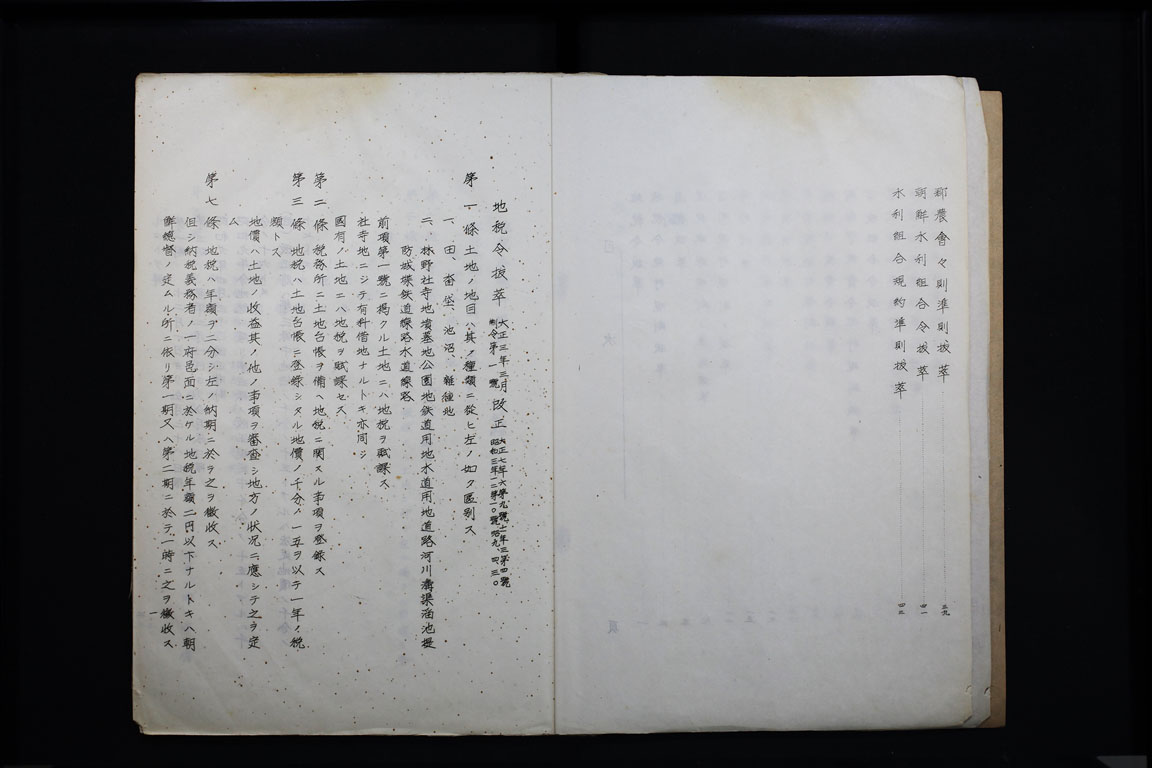 郡農會々則準則拔萃 三九
朝鮮水利組合令拔萃 四一
水利組合規約準則拔萃 四三
地稅令拔萃 大正三年三月制令第一號 改正 大正七年六第九號、十一年三第四號 昭和三年一二第一〇號 昭九、四、三〇
第一條 土地ノ地目ハ其ノ種類ニ從ヒ左ノ如ク區別ス
一、田、畓、垈、池沼、雜種地
二、林野社寺地墳墓地公園地鉄道用地水道用地道路河川溝渠溜池堤
防城堞鉄道線路水道線路
前項第一號ニ揭クル土地ニハ地稅ヲ賦課ス
社寺地ニシテ有料借地ナルトキ亦同ジ
國有ノ土地ニハ地稅ヲ賦課セス
第二條 稅務所ニ土地台帳ヲ備ヘ地稅ニ関スル事項ヲ登錄ス
第三條 地稅ハ土地台帳ニ登錄シタル地價ノ千分ノ一五ヲ以テ一年ノ稅
額トス
地價ハ土地ノ收益其ノ他ノ事項ヲ審査シ地方ノ狀况ニ應シテ之ヲ定
ム
第七條 地稅ハ年額ヲ二分シ左ノ納期ニ於テ之ヲ徵收ス
但シ納稅義務者ノ一府邑面ニ於ケル地稅年額二円以下ナルトキハ朝
鮮總督ノ定ムル所ニ依リ第一期又ハ第二期ニ於テ一時ニ之ヲ徵收ス
一